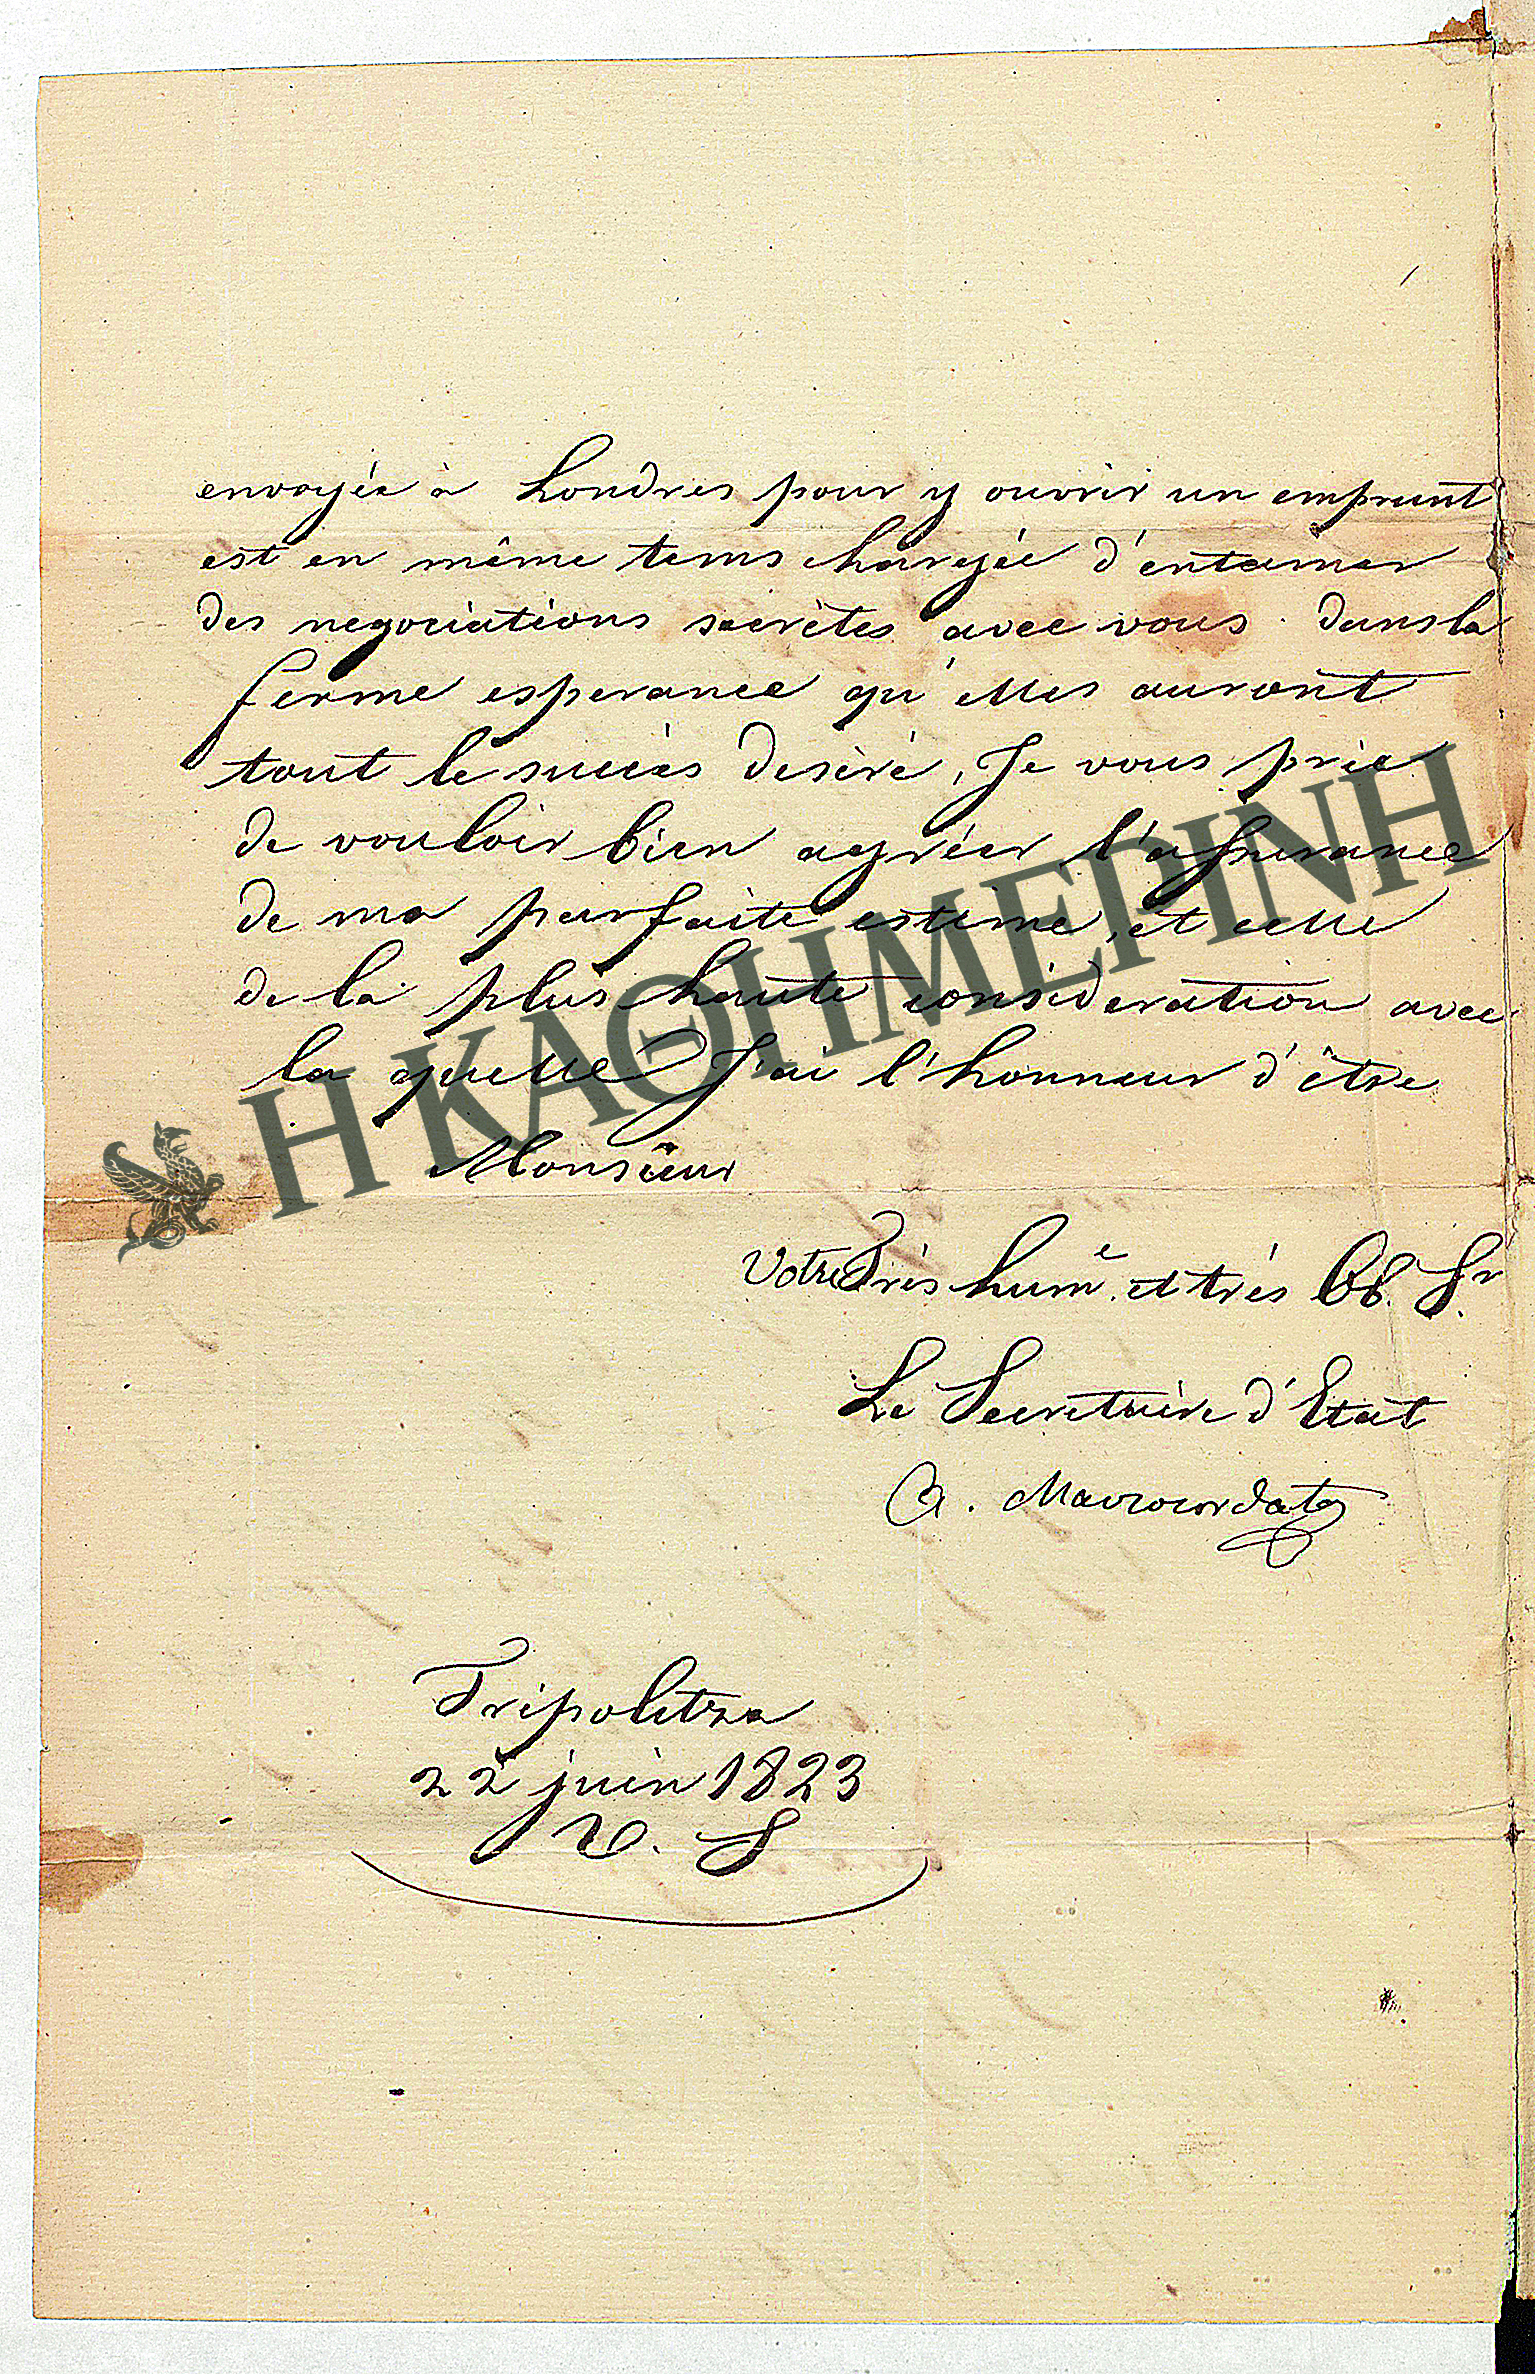 envoyée à Londres pour y ouvrir un emprunt
est en même tems chargée d'entamer
des negociations secrètes avec vous. dans la
ferme esperance qu'elles auront
tout le succès desiré, Je vous prie
de vouloir bien agréer l'assurance
de ma parfaite estime, et celle
de la plus haute consideration avec
la quelle J'ai l'honneur d'être
Monsieur
Votre Très hum.e et très Ob. Sr.
Le Secretaire d'Etat
A. Mavrocordato
Tripolitza
22 juin 1823
V. S
Η ΚΑΘΗΜΕΡΙΝΗ